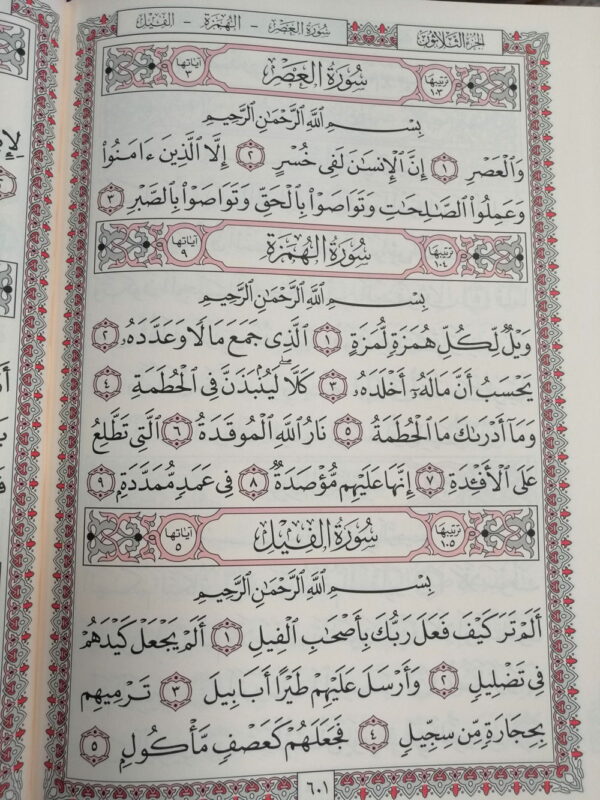 سُورَةُ العَصْرِ - الهُمَزَةِ - الفِيلِ
الجزء الثلاثون
ترتيبها ١٠٣ سُورَةُ العَصْرِ آياتها ٣
بِسْمِ اللَّهِ الرَّحْمَٰنِ الرَّحِيمِ
وَالْعَصْرِ ١ إِنَّ الْإِنسَانَ لَفِي خُسْرٍ ٢ إِلَّا الَّذِينَ ءَامَنُوا
وَعَمِلُوا الصَّالِحَاتِ وَتَوَاصَوْا بِالْحَقِّ وَتَوَاصَوْا بِالصَّبْرِ ٣
ترتيبها ١٠٤ سُورَةُ الهُمَزَةِ آياتها ٩
بِسْمِ اللَّهِ الرَّحْمَٰنِ الرَّحِيمِ
وَيْلٌ لِّكُلِّ هُمَزَةٍ لُّمَزَةٍ ١ الَّذِي جَمَعَ مَالًا وَعَدَّدَهُۥ ٢
يَحْسَبُ أَنَّ مَالَهُۥٓ أَخْلَدَهُۥ ٣ كَلَّا ۖ لَيُنۢبَذَنَّ فِي الْحُطَمَةِ ٤
وَمَآ أَدْرَىٰكَ مَا الْحُطَمَةُ ٥ نَارُ اللَّهِ الْمُوقَدَةُ ٦ الَّتِي تَطَّلِعُ
عَلَى الْأَفْـِٔدَةِ ٧ إِنَّهَا عَلَيْهِم مُّؤْصَدَةٌ ٨ فِي عَمَدٍ مُّمَدَّدَةٍۭ ٩
ترتيبها ١٠٥ سُورَةُ الفِيلِ آياتها ٥
بِسْمِ اللَّهِ الرَّحْمَٰنِ الرَّحِيمِ
أَلَمْ تَرَ كَيْفَ فَعَلَ رَبُّكَ بِأَصْحَٰبِ الْفِيلِ ١ أَلَمْ يَجْعَلْ كَيْدَهُمْ
فِي تَضْلِيلٍ ٢ وَأَرْسَلَ عَلَيْهِمْ طَيْرًا أَبَابِيلَ ٣ تَرْمِيهِم
بِحِجَارَةٍ مِّن سِجِّيلٍ ٤ فَجَعَلَهُمْ كَعَصْفٍ مَّأْكُولٍۭ ٥
٦٠١